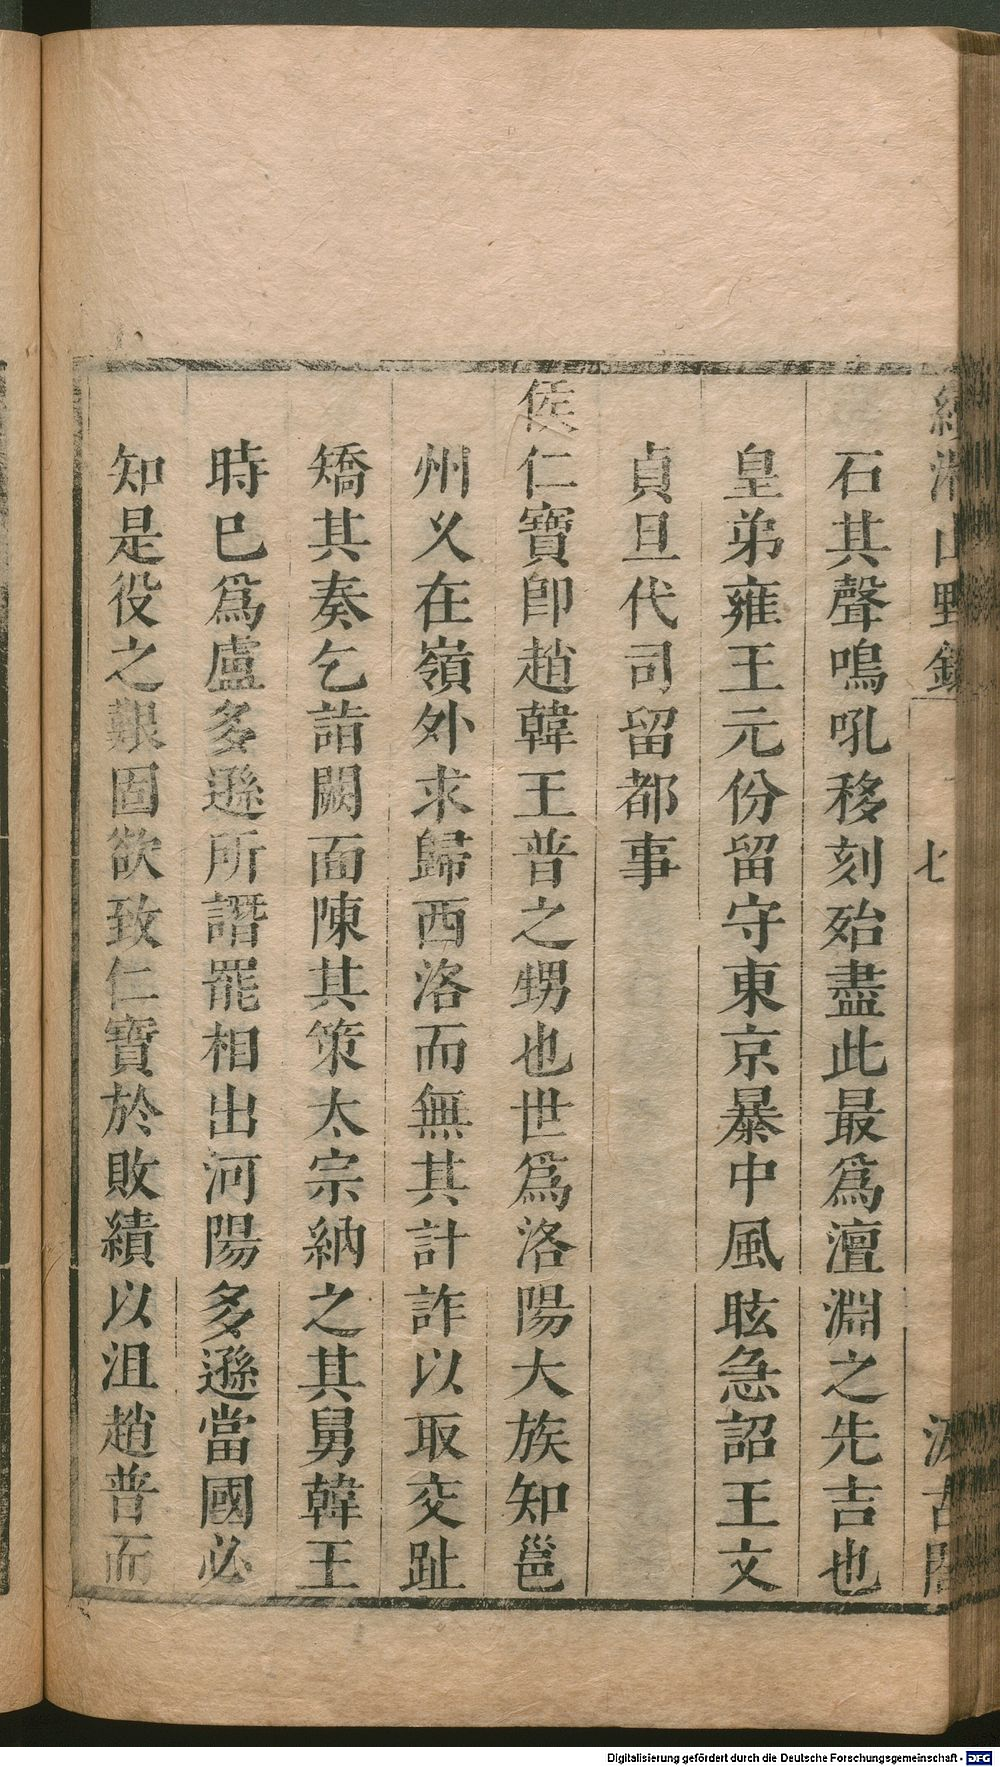 續湘山野錄 七 汲古閣
石其聲鳴吼移刻殆盡此最爲澶淵之先吉也
皇弟雍王元份留守東京暴中風眩急詔王文
貞旦代司留都事
侯仁寶卽趙韓王普之甥也世爲洛陽大族知邕
州乂在嶺外求歸西洛而無其計詐以取交趾
矯其奏乞詣闕面陳其策太宗納之其舅韓王
時巳爲盧多遜所譖罷相出河陽多遜當國必
知是役之艱固欲致仁寶於敗績以沮趙普而
Digitalisierung gefördert durch die Deutsche Forschungsgemeinschaft - DFG